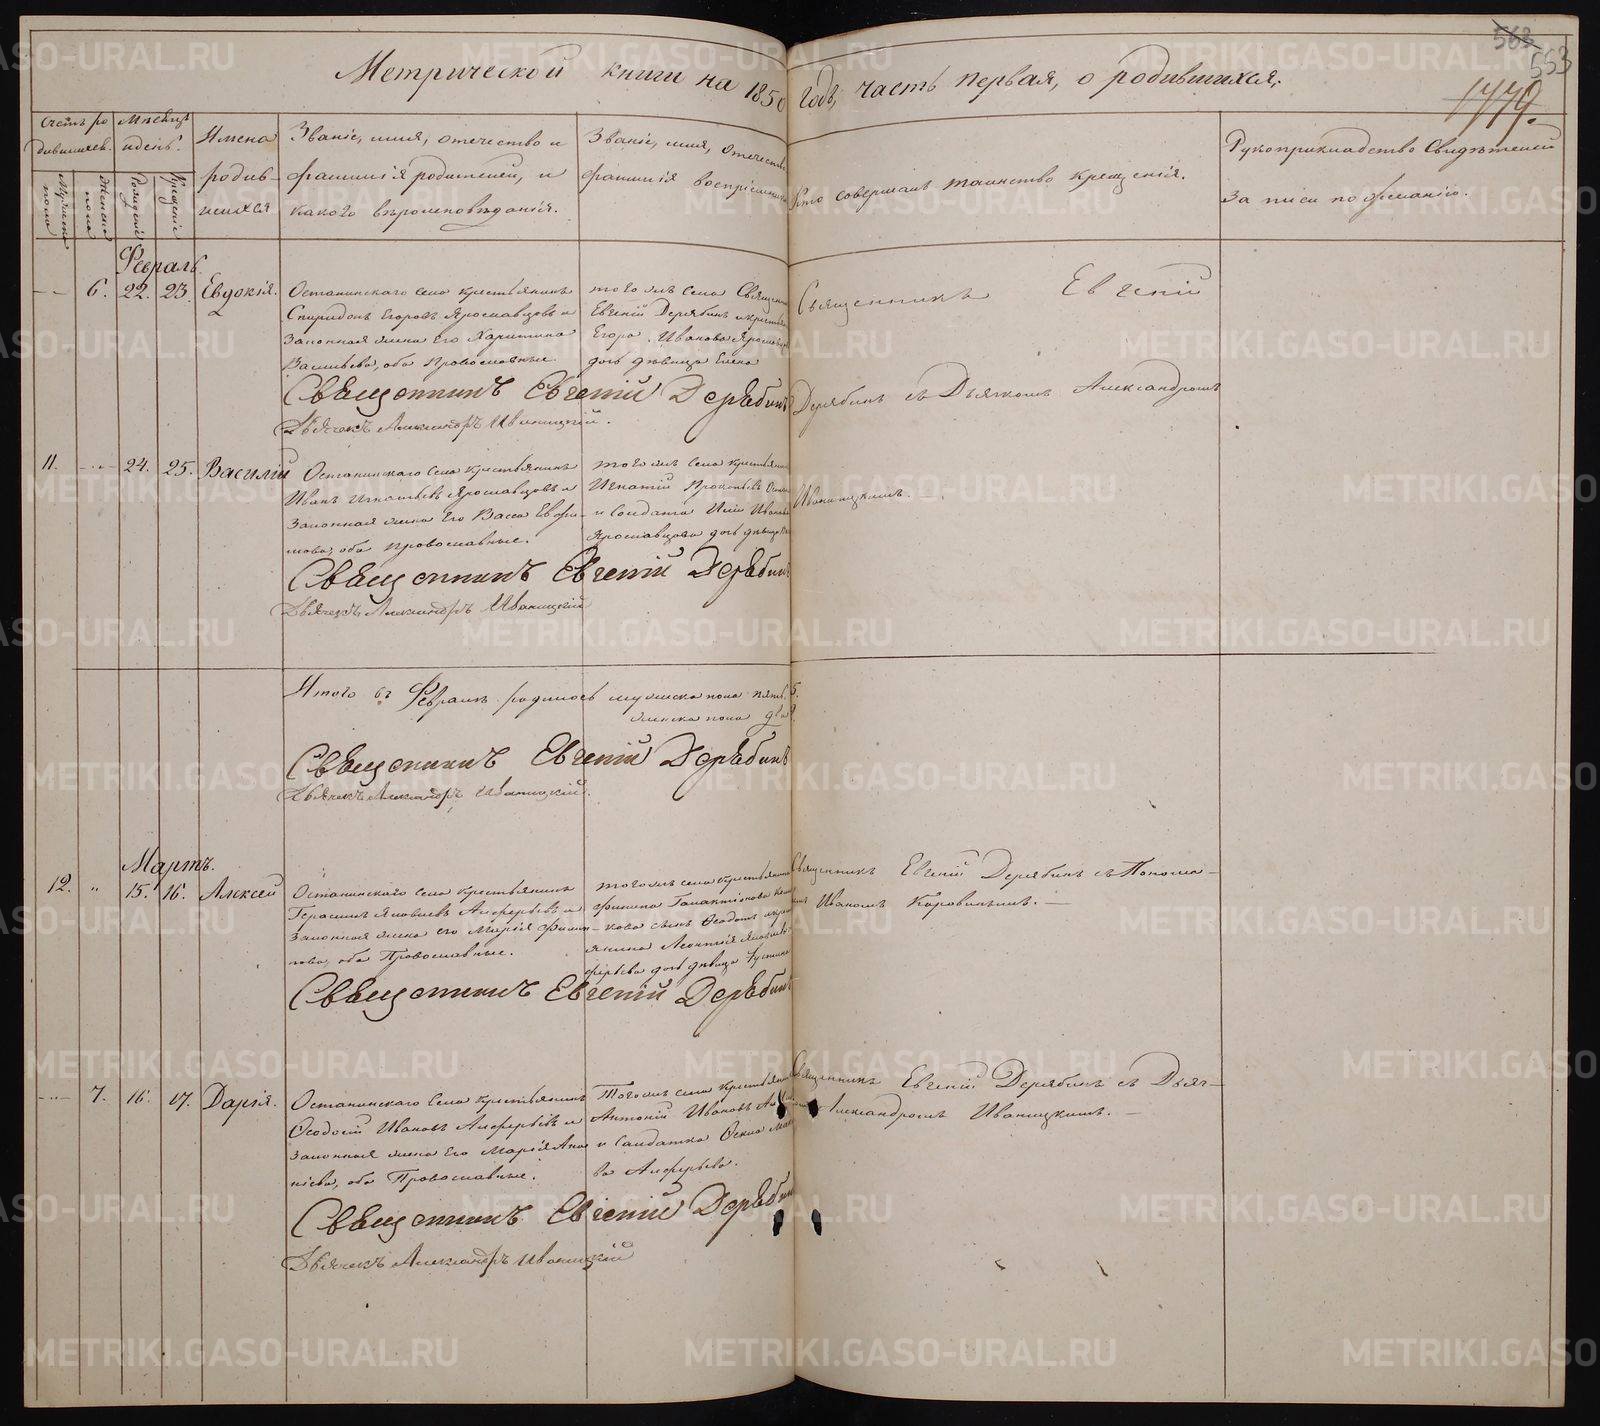 563
553
1779.
Метрической книги на 1850 годъ, часть первая, о родившихся.
Счетъ ро
дившихся.
Мужеска
пола
Женска
пола
Мѣсяцъ
и день.
Рожденія
Крещенія
Имена
родив-
шихся
Званіе, имя, отечество и
фамилія родителей, и
какого вѣроисповѣданія.
Званіе, имя, отечество
фамилія воспріемниковъ
Кто совершалъ таинство крещенія.
Рукоприкладство свидѣтелей
записи по желанію.
Февраль
6. 22. 23. Евдокія.
Останинскаго села крестьянинъ
Спиридонъ Егоровъ Ярославцовъ и
законная жена его Харитина
Васильева, оба Православные.
того же села Священникъ
Евгеній Дерябинъ и крестьянина
Егора Иванова Ярославцова
дочь дѣвица Елена
Священникъ Евгеній
Дерябинъ съ Дьячкомъ Александромъ
Иваницкимъ.
Священникъ Евгеній Дерябинъ
Дьячекъ Александръ Иваницкій.
11. 24. 25. Василій
Останинскаго села крестьянинъ
Иванъ Игнатьевъ Ярославцовъ и
законная жена его Васса Евфи-
мова, оба православные.
того же села крестьянинъ
Игнатій Прокопьевъ
и солдата Иванова
Ярославцова дочь дѣвица
Священникъ Евгеній Дерябинъ
Дьячекъ Александръ Иваницкій
Итого въ Февралѣ родилось мужеска пола пять 5.
женска пола два
Священникъ Евгеній Дерябинъ
Дьячекъ Александръ Иваницкій.
Мартъ.
12. " 15. 16. Алексей
Останинскаго села крестьянинъ
Герасимъ Яковлевъ Алферьевъ и
законная жена его Марія Филип-
пова, оба Православные.
того же села крестьянина
Филипа Галактіонова
кова сынъ Ѳедотъ и крес
янина Леонтія Яковлева
ферьева дочь дѣвица
Священникъ Евгеній Дерябинъ съ Понома-
Иваномъ Коровинымъ.
Священникъ Евгеній Дерябинъ
7. 16. 17. Дарія.
Останинскаго села крестьянинъ
Ѳедосій Ивановъ Алферьевъ и
законная жена его Марія Ана
ніева, оба Православные.
Того же села крестьянинъ
Антоній Ивановъ
и солдатка
ва Алферьева.
Священникъ Евгеній Дерябинъ съ Дьяч-
Александромъ Иваницкимъ.
Священникъ Евгеній Дерябинъ
Дьячекъ Александръ Иваницкій
METRIKI.GASO-URAL.RU